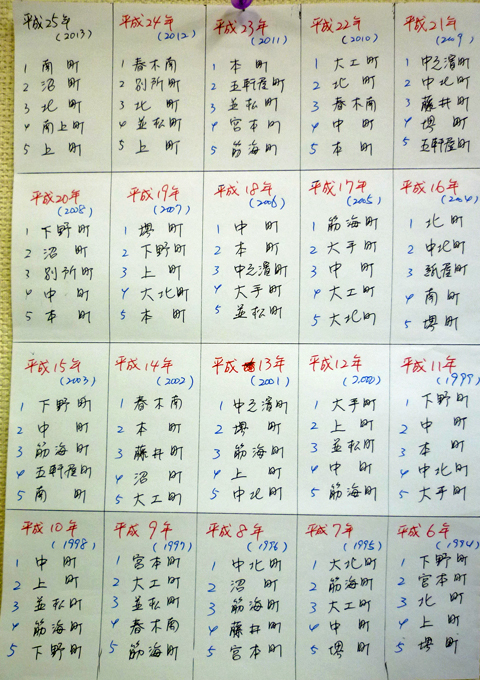 平成25年
(2013)
1 南町
2 沼町
3 北町
4 南上町
5 上町
平成24年
(2012)
1 春木南
2 別所町
3 北町
4 並松町
5 上町
平成23年
(2011)
1 本町
2 五軒屋町
3 並松町
4 宮本町
5 筋海町
平成22年
(2010)
1 大工町
2 北町
3 春木南
4 中町
5 本町
平成21年
(2009)
1 中之濱町
2 中北町
3 藤井町
4 堺町
5 五軒屋町
平成20年
(2008)
1 下野町
2 沼町
3 別所町
4 中町
5 本町
平成19年
(2007)
1 堺町
2 下野町
3 上町
4 大北町
5 本町
平成18年
(2006)
1 中町
2 本町
3 中之濱町
4 大手町
5 並松町
平成17年
(2005)
1 筋海町
2 大手町
3 中町
4 大工町
5 大北町
平成16年
(2004)
1 北町
2 中北町
3 紙屋町
4 南町
5 堺町
平成15年
(2003)
1 下野町
2 中町
3 筋海町
4 五軒屋町
5 南町
平成14年
(2002)
1 春木南
2 本町
3 藤井町
4 沼町
5 大工町
平成13年
(2001)
1 中之濱町
2 堺町
3 筋海町
4 上町
5 中北町
平成12年
(2000)
1 大手町
2 上町
3 並松町
4 中町
5 筋海町
平成11年
(1999)
1 下野町
2 中町
3 本町
4 中北町
5 大手町
平成10年
(1998)
1 中町
2 上町
3 並松町
4 筋海町
5 下野町
平成9年
(1997)
1 宮本町
2 大工町
3 並松町
4 春木南
5 筋海町
平成8年
(1996)
1 中北町
2 沼町
3 筋海町
4 藤井町
5 宮本町
平成7年
(1995)
1 大北町
2 筋海町
3 大工町
4 中町
5 堺町
平成6年
(1994)
1 下野町
2 宮本町
3 北町
4 上町
5 堺町